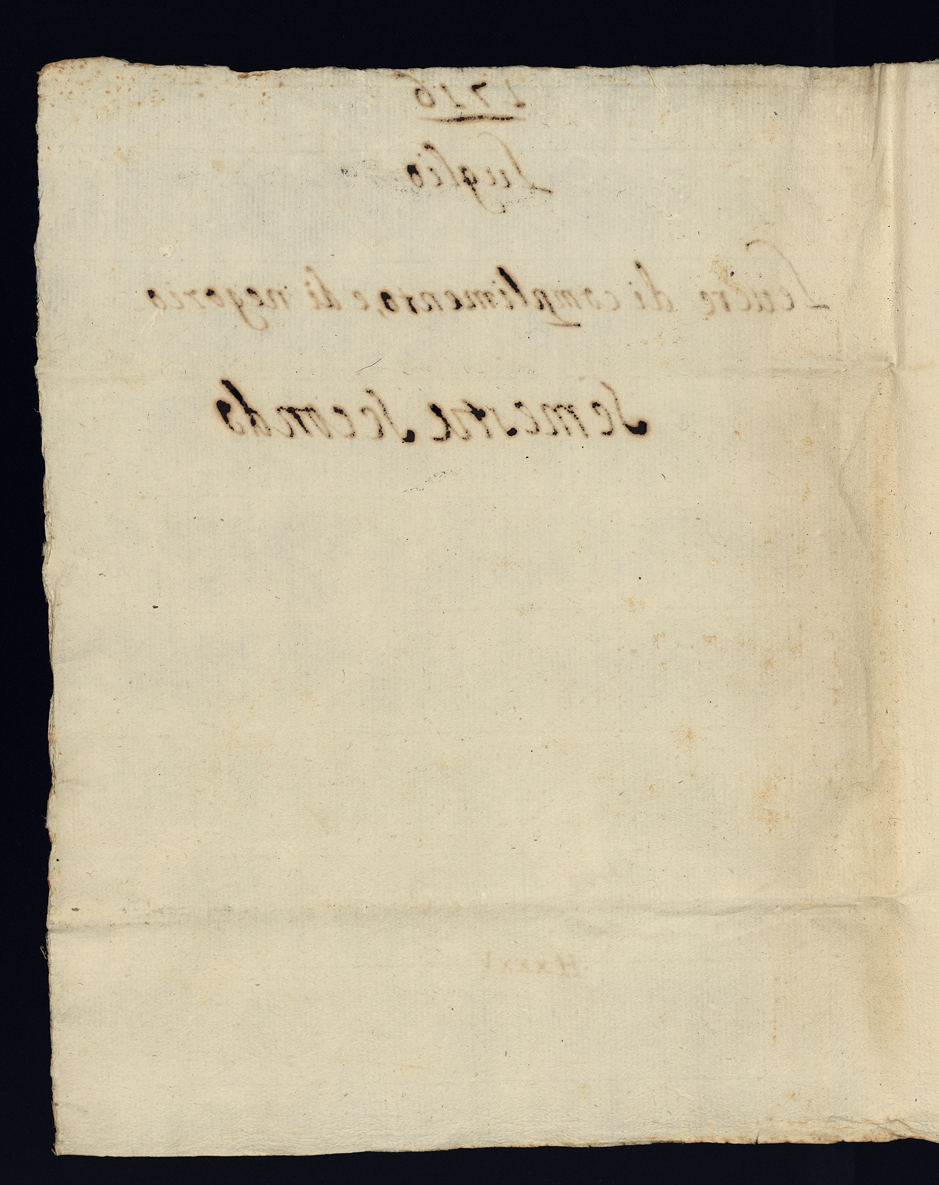 1716
Luglio
Lettere di complimento, e di negorio
Semestre Secondo